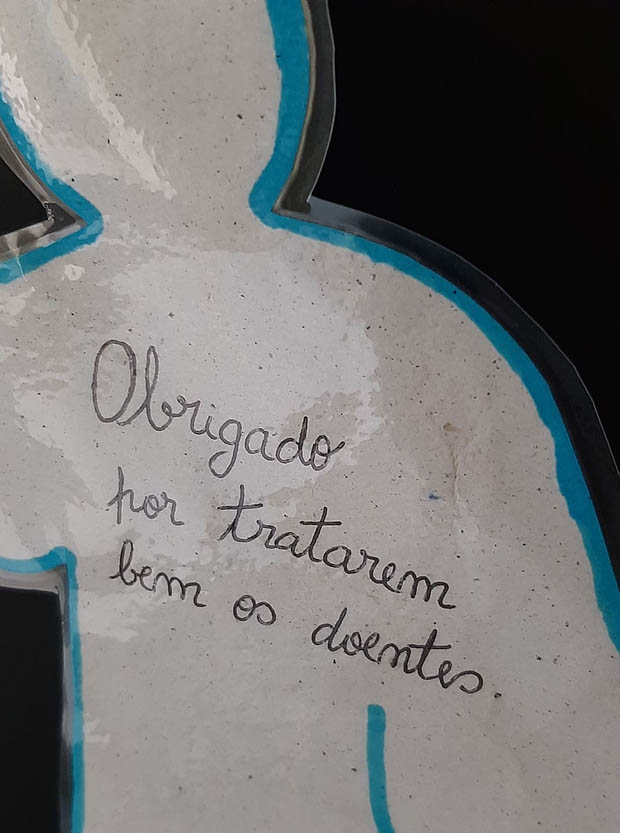 Obrigado
por tratarem
bem os doentes.